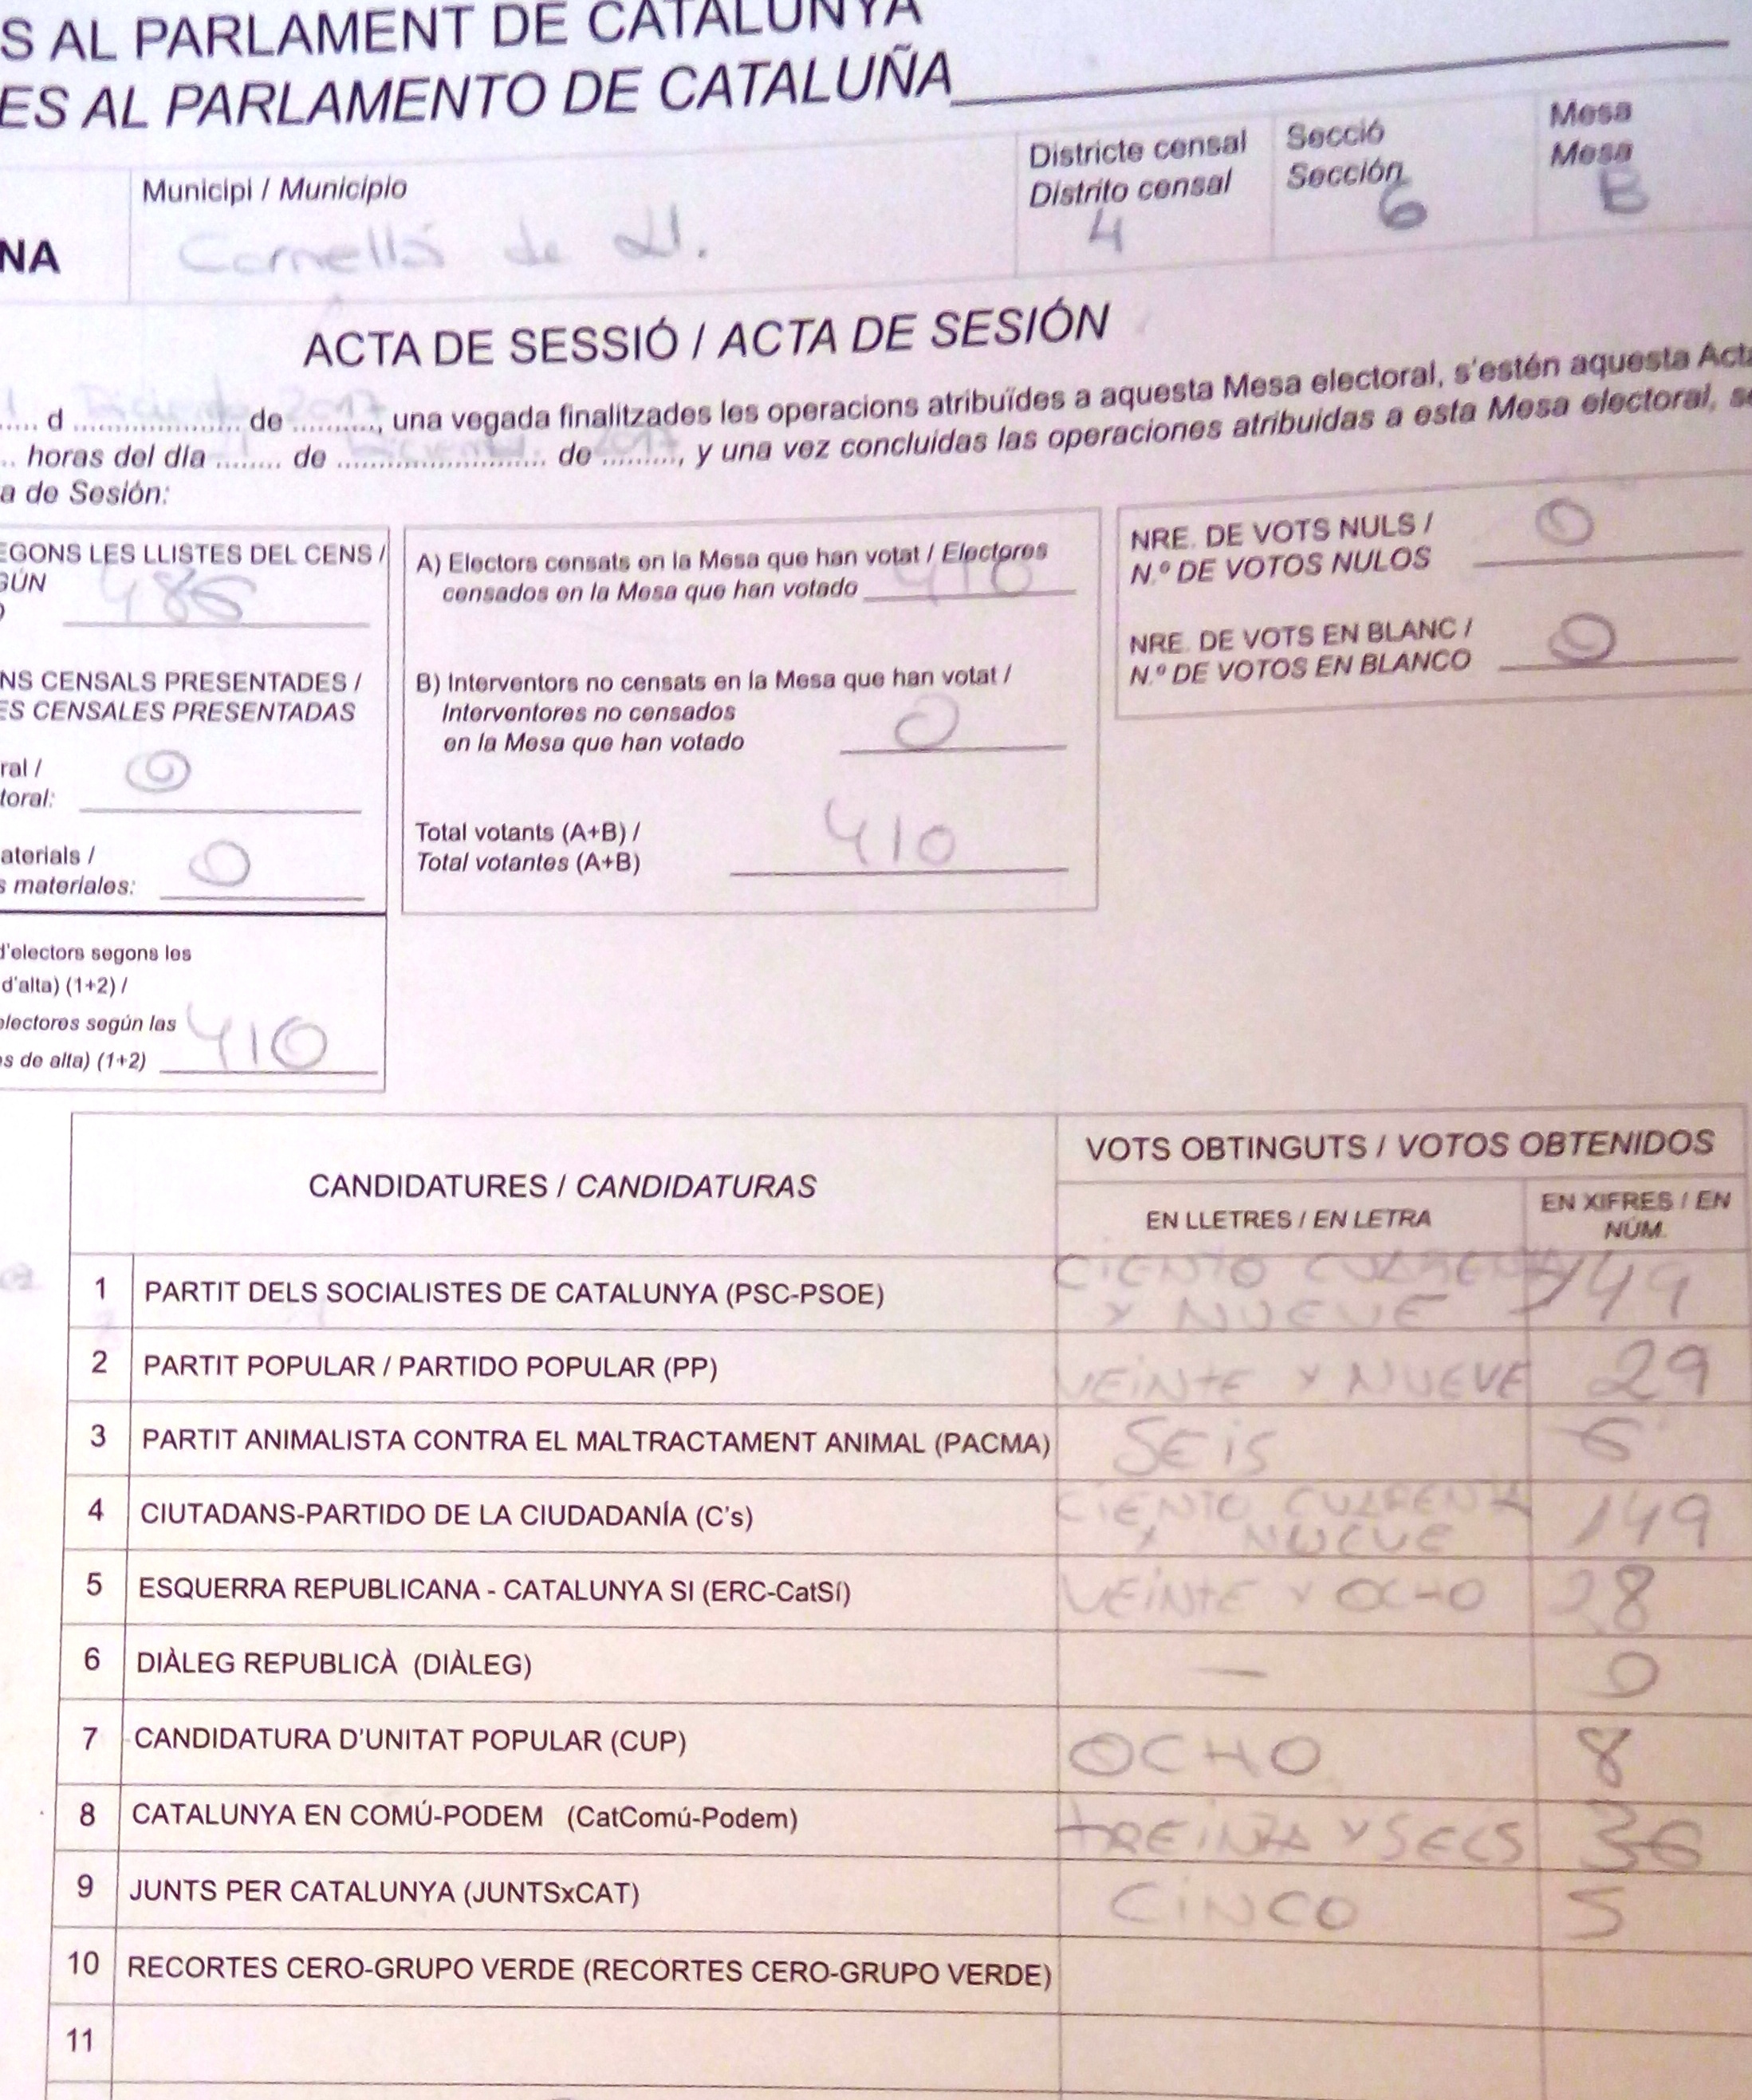 S AL PARLAMENT DE CATALUNYA
ES AL PARLAMENTO DE CATALUÑA
Municipi / Municipio
Districte censal
Distrito censal
4
Secció
Sección
6
Mesa
Mesa
B
NA
Cornellà de Ll.
ACTA DE SESSIÓ / ACTA DE SESIÓN
d Diciembre de 2017, una vegada finalitzades les operacions atribuïdes a aquesta Mesa electoral, s'estén aquesta Acta
horas del día ........ de ........ de 2017, y una vez concluidas las operaciones atribuidas a esta Mesa electoral, se
a de Sesión:
EGONS LES LLISTES DEL CENS /
GÚN
486
NS CENSALS PRESENTADES /
ES CENSALES PRESENTADAS
ral /
toral: 0
aterials /
s materiales: 0
d'electors segons les
d'alta) (1+2) /
electores según las
s de alta) (1+2) 410
A) Electors censats en la Mesa que han votat / Electores
censados en la Mesa que han votado 410
B) Interventors no censats en la Mesa que han votat /
Interventores no censados
en la Mesa que han votado 0
Total votants (A+B) /
Total votantes (A+B) 410
NRE. DE VOTS NULS /
N.º DE VOTOS NULOS 0
NRE. DE VOTS EN BLANC /
N.º DE VOTOS EN BLANCO 0
CANDIDATURES / CANDIDATURAS
VOTS OBTINGUTS / VOTOS OBTENIDOS
EN LLETRES / EN LETRA
EN XIFRES / EN
NÚM.
1 PARTIT DELS SOCIALISTES DE CATALUNYA (PSC-PSOE) CIENTO CUARENTA
Y NUEVE 149
2 PARTIT POPULAR / PARTIDO POPULAR (PP) VEINTE Y NUEVE 29
3 PARTIT ANIMALISTA CONTRA EL MALTRACTAMENT ANIMAL (PACMA) SEIS 6
4 CIUTADANS-PARTIDO DE LA CIUDADANÍA (C's) CIENTO CUARENTA
Y NUEVE 149
5 ESQUERRA REPUBLICANA - CATALUNYA SI (ERC-CatSí) VEINTE Y OCHO 28
6 DIÀLEG REPUBLICÀ (DIÀLEG) — 0
7 CANDIDATURA D'UNITAT POPULAR (CUP) OCHO 8
8 CATALUNYA EN COMÚ-PODEM (CatComú-Podem) TREINTA Y SEIS 36
9 JUNTS PER CATALUNYA (JUNTSxCAT) CINCO 5
10 RECORTES CERO-GRUPO VERDE (RECORTES CERO-GRUPO VERDE)
11